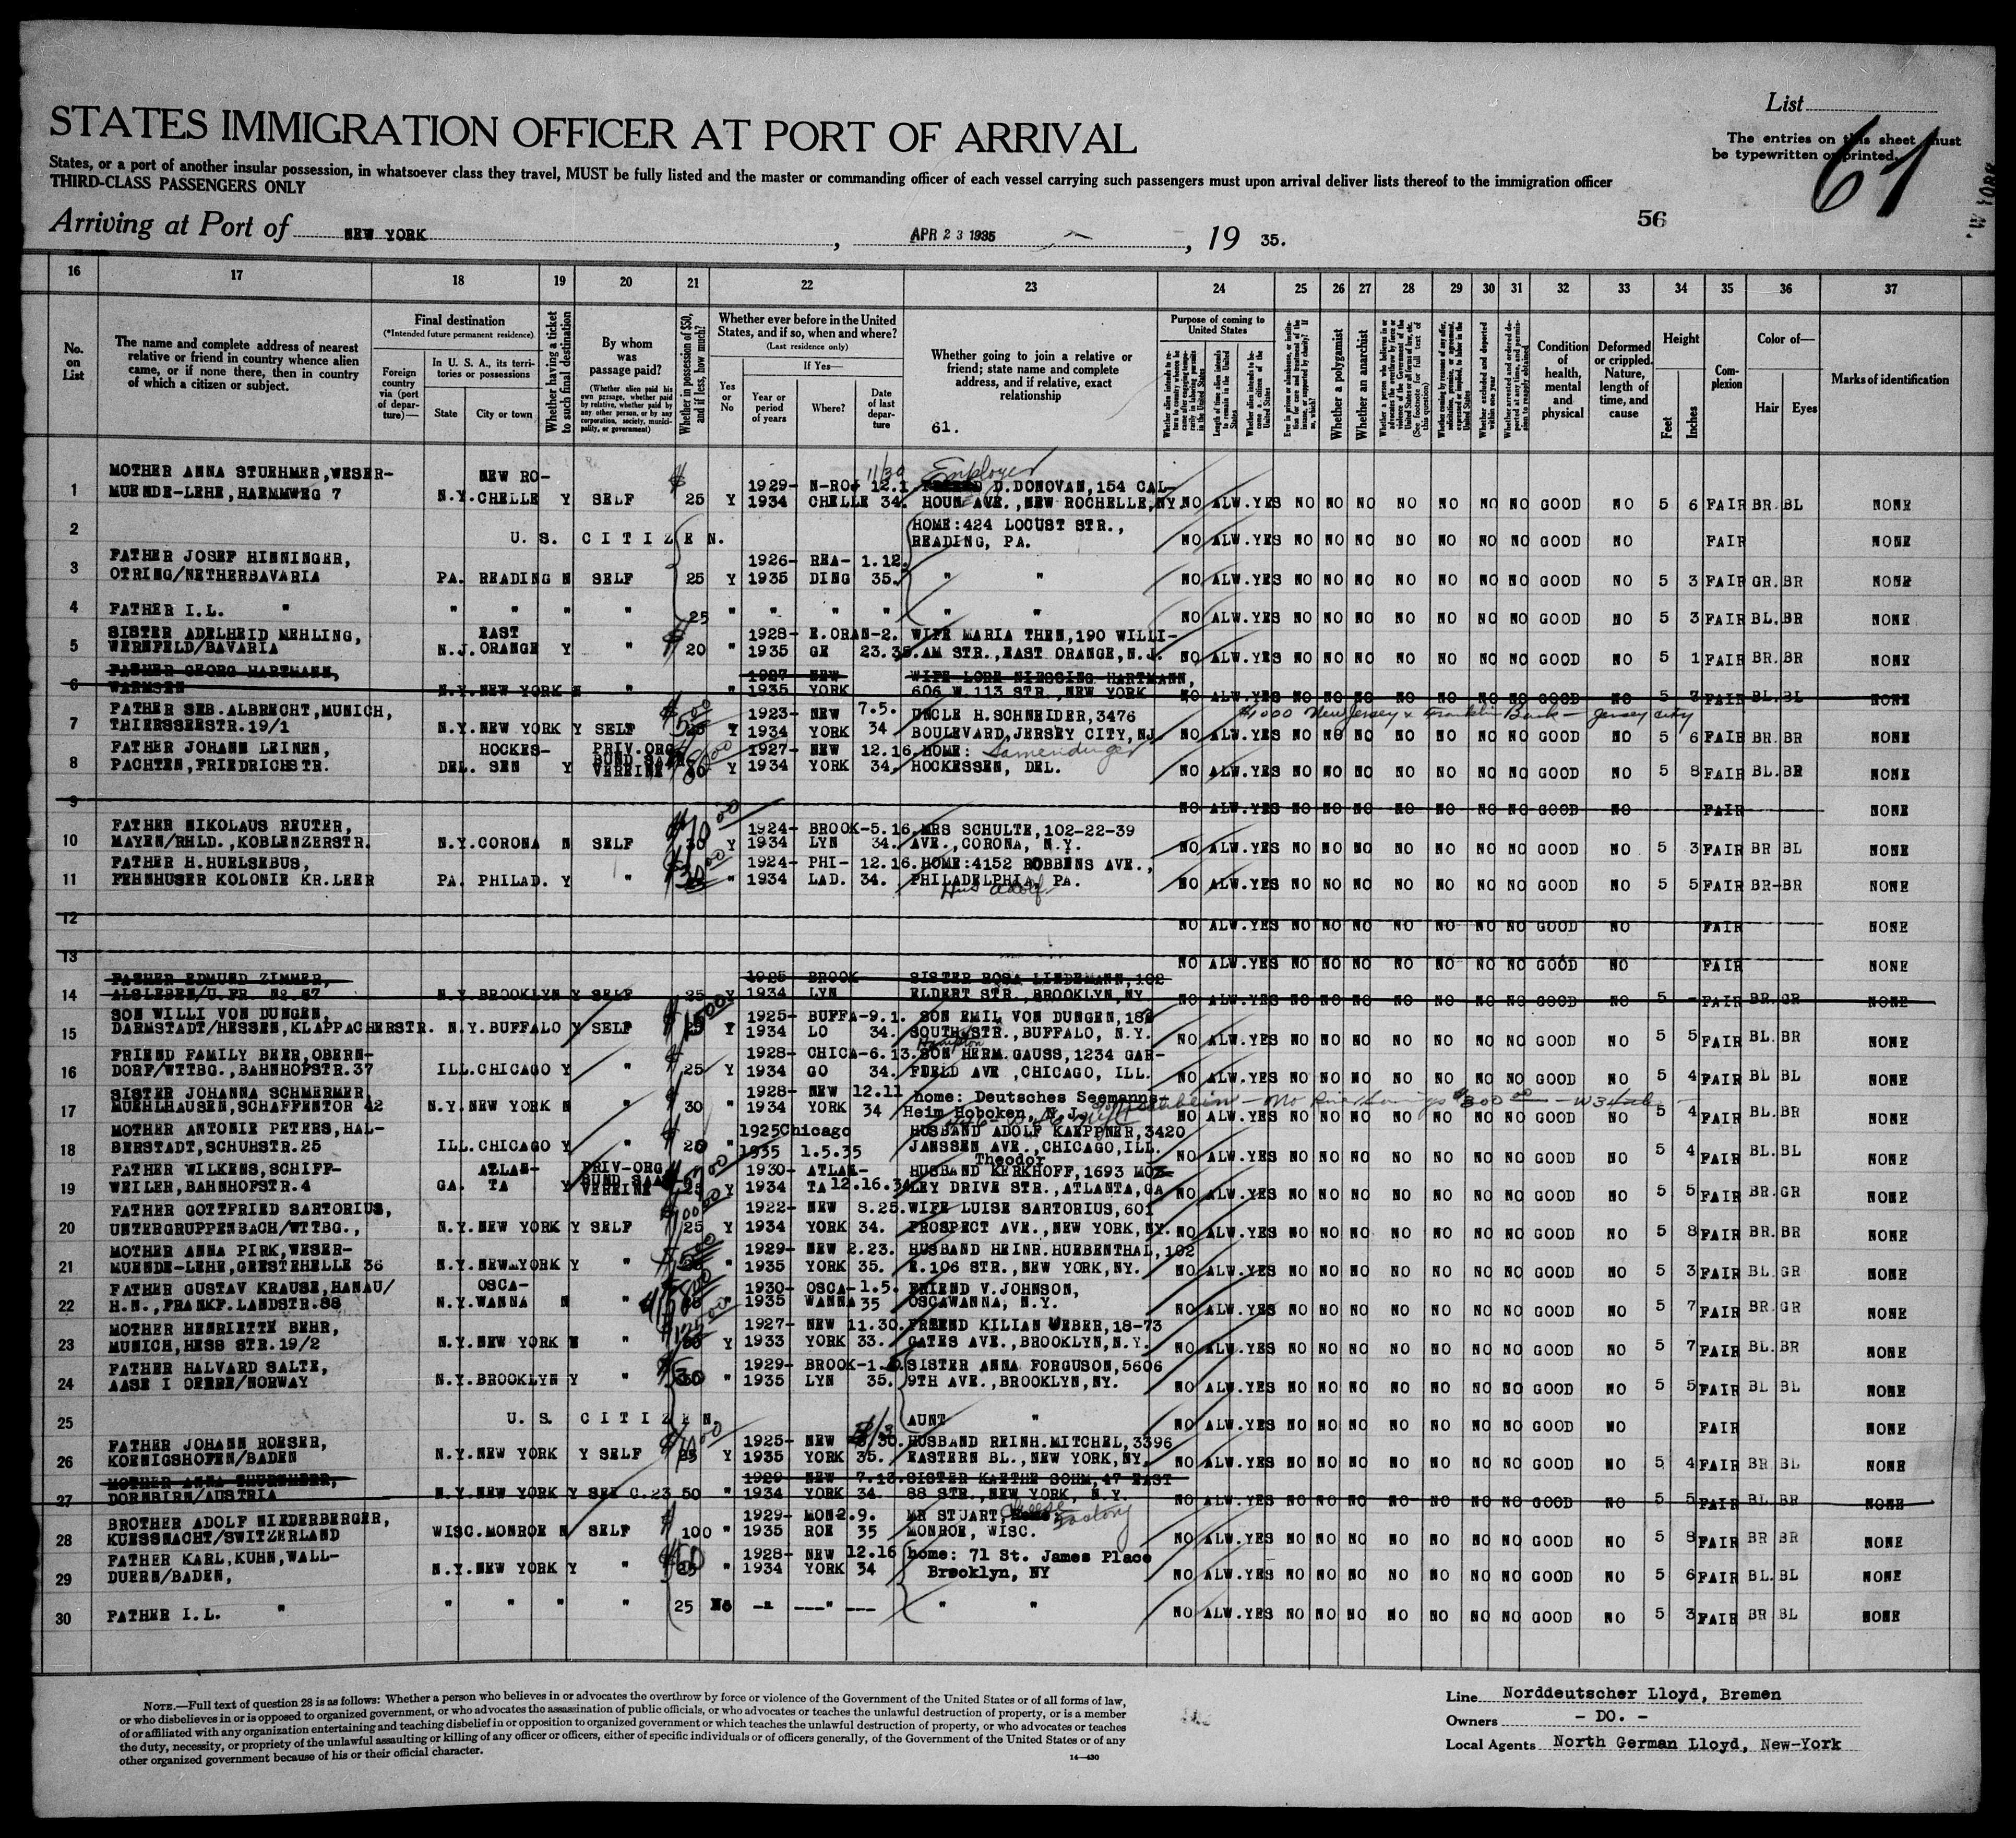 List
STATES IMMIGRATION OFFICER AT PORT OF ARRIVAL
The entries on this sheet must
be typewritten or printed.
61
States, or a port of another insular possession, in whatsoever class they travel, MUST be fully listed and the master or commanding officer of each vessel carrying such passengers must upon arrival deliver lists thereof to the immigration officer
THIRD-CLASS PASSENGERS ONLY
56
Arriving at Port of NEW YORK, APR 23 1935, 19 35.
16 17 18 19 20 21 22 23 24 25 26 27 28 29 30 31 32 33 34 35 36 37
No. on List
The name and complete address of nearest relative or friend in country whence alien came, or if none there, then in country of which a citizen or subject.
Final destination
(*Intended future permanent residence)
Foreign country via (port of departure)—
In U. S. A., its territories or possessions
State
City or town
Whether having a ticket to such final destination
By whom was passage paid?
(Whether alien paid his own passage, whether paid by relative, whether paid by any other person, or by any corporation, society, municipality, or government)
Whether in possession of $50, and if less, how much?
Whether ever before in the United States, and if so, when and where?
(Last residence only)
Yes or No
If Yes—
Year or period of years
Where?
Date of last departure
Whether going to join a relative or friend; state name and complete address, and if relative, exact relationship
61.
Purpose of coming to United States
Length of time alien intends to remain in the United States
Whether alien intends to become a citizen of the United States
Whether a polygamist
Whether an anarchist
Condition of health, mental and physical
Deformed or crippled. Nature, length of time, and cause
Height
Feet
Inches
Complexion
Color of—
Hair
Eyes
Marks of identification
MOTHER ANNA STUEHMER,WESER- NEW RO- 11/30 Employer
1 MUENDE-LEHE,HAEMMWEG 7 N.Y.CHELLE Y SELF 25 Y 1929-1934 N-RO CHELLE 12.1 34. D.DONOVAN,154 CAL-
HOUN AVE.,NEW ROCHELLE,NY. NO ALW.YES NO NO NO NO NO NO NO GOOD NO 5 6 FAIR BR. BL NONE
2 U. S. CITIZEN. HOME:424 LOCUST STR.,
READING, PA. NO ALW.YES NO NO NO NO NO NO NO GOOD NO FAIR NONE
FATHER JOSEF HINNINGER, 1926- REA- 1.12.
3 OTRING/NETHERBAVARIA PA. READING N SELF 25 Y 1935 DING 35. " " NO ALW.YES NO NO NO NO NO NO NO GOOD NO 5 3 FAIR GR.BR NONE
4 FATHER I.L. " " " " " 25 " " " " " " NO ALW.YES NO NO NO NO NO NO NO GOOD NO 5 3 FAIR BL.BR NONE
SISTER ADELHEID MEHLING, EAST 1928- E.ORAN-2. WIFE MARIA THEN,190 WILLI-
5 WERNFELD/BAVARIA N.J.ORANGE Y " 20 " 1935 GE 23.35. AM STR.,EAST ORANGE,N.J. NO ALW.YES NO NO NO NO NO NO NO GOOD NO 5 1 FAIR BR.BR NONE
FATHER GEORG HARTMANN, 1927- NEW WIFE LORE NIESSING HARTMANN,
6 WARMSEN N.Y.NEW YORK N " " 1935 YORK 606 W.113 STR.,NEW YORK NO ALW.YES NO NO NO NO NO NO NO GOOD NO 5 3 FAIR BL.BL NONE
FATHER SEB.ALBRECHT,MUNICH, 1923- NEW 7.5. UNCLE H.SCHNEIDER,3476 $1000 New Jersey & Franklin Bank - Jersey City
7 THIERSSEESTR.19/1 N.Y.NEW YORK Y SELF Y 1934 YORK 34 BOULEVARD,JERSEY CITY,NJ NO ALW.YES NO NO NO NO NO NO NO GOOD NO 5 6 FAIR BR.BR NONE
FATHER JOHANN LEINEN, HOCKES- PRIV.ORG. 1927- NEW 12.16. HOME:
8 PACHTEN,FRIEDRICHSTR. DEL. SEN Y BUND SAAR VEREINE Y 1934 YORK 34, HOCKESSEN, DEL. NO ALW.YES NO NO NO NO NO NO NO GOOD NO 5 8 FAIR BL.BR NONE
9 NO ALW.YES NO NO NO NO NO NO NO GOOD NO FAIR NONE
FATHER NIKOLAUS REUTER, 1924- BROOK-5.16. MRS SCHULTE,102-22-39
10 MAYEN/RHLD.,KOBLENZERSTR. N.Y.CORONA N SELF 30 Y 1934 LYN 34. AVE.,CORONA, N.Y. NO ALW.YES NO NO NO NO NO NO NO GOOD NO 5 3 FAIR BR BL NONE
FATHER H.HUELSEBUS, 1924- PHI- 12.16. HOME:4152 ROBBENS AVE.,
11 FEHNHUSER KOLONIE KR.LEER PA. PHILAD. Y " " 1934 LAD. 34. PHILADELPHIA, PA. NO ALW.YES NO NO NO NO NO NO NO GOOD NO 5 5 FAIR BR-BR NONE
Hus Adolf
12 NO ALW.YES NO NO NO NO NO NO NO GOOD NO FAIR NONE
13 NO ALW.YES NO NO NO NO NO NO NO GOOD NO FAIR NONE
FATHER EDMUND ZIMMER, 1925- BROOK SISTER ROSA LINDEMANN,102
14 ALSLEBEN/U.FR. No.67 N.Y.BROOKLYN Y SELF 25 Y 1934 LYN ELDERT STR.,BROOKLYN,NY NO ALW.YES NO NO NO NO NO NO NO GOOD NO 5 - FAIR BR.GR NONE
SON WILLI VON DUNGEN, 1925- BUFFA-9.1. SON EMIL VON DUNGEN,182
15 DARMSTADT/HESSEN,KLAPPACHERSTR. N.Y.BUFFALO Y SELF 25 Y 1934 LO 34. SOUTH STR.,BUFFALO, N.Y. NO ALW.YES NO NO NO NO NO NO NO GOOD NO 5 5 FAIR BL.BR NONE
Hampton
FRIEND FAMILY BEER,OBERN- 1928- CHICA-6.13. SON HERM.GAUSS,1234 GAR-
16 DORF/WTTBG.,BAHNHOFSTR.37 ILL.CHICAGO Y " 25 Y 1934 GO 34. FIELD AVE ,CHICAGO, ILL. NO ALW.YES NO NO NO NO NO NO NO GOOD NO 5 4 FAIR BL BL NONE
SISTER JOHANNA SCHMERMER 1928- NEW 12.11 home: Deutsches Seemanns-
17 MUEHLHAUSEN,SCHAFFENTOR 42 N.Y.NEW YORK N " 30 " 1934 YORK 34 Heim Hoboken, N.J. NO ALW.YES NO NO NO NO NO NO NO GOOD NO 5 4 FAIR BL.BR NONE
MOTHER ANTONIE PETERS,HAL- 1925 Chicago HUSBAND ADOLF KAEPPNER,3420
18 BERSTADT,SCHUHSTR.25 ILL.CHICAGO Y " 20 " 1935 1.5.35 JANSSEN AVE.,CHICAGO,ILL. NO ALW.YES NO NO NO NO NO NO NO GOOD NO 5 4 FAIR BL.BL NONE
Theodor
FATHER WILKENS,SCHIFF- ATLAN- PRIV-ORG 1930- ATLAN- HUSBAND KERKHOFF,1693 MOZ-
19 WEILER,BAHNHOFSTR.4 GA. TA Y BUND SAAR VEREINE 25 Y 1934 TA 12.16.34 LEY DRIVE STR.,ATLANTA,GA NO ALW.YES NO NO NO NO NO NO NO GOOD NO 5 5 FAIR BR.GR NONE
FATHER GOTTFRIED SARTORIUS, 1922- NEW 8.25. WIFE LUISE SARTORIUS,601
20 UNTERGRUPPENBACH/WTTBG., N.Y.NEW YORK Y SELF 25 Y 1934 YORK 34. PROSPECT AVE.,NEW YORK,NY. NO ALW.YES NO NO NO NO NO NO NO GOOD NO 5 8 FAIR BR.BR NONE
MOTHER ANNA PIRK,WESER- 1929- NEW 2.23. HUSBAND HEINR.HUEBENTHAL,102
21 MUENDE-LEHE,GEESTEHELLE 36 N.Y.NEW YORK Y " " 1935 YORK 35. E.106 STR.,NEW YORK,NY. NO ALW.YES NO NO NO NO NO NO NO GOOD NO 5 3 FAIR BL GR NONE
FATHER GUSTAV KRAUSE,HANAU/ OSCA- 1930- OSCA-1.5. FRIEND V.JOHNSON,
22 H.N.,FRANKF.LANDSTR.88 N.Y.WANNA N " " 1935 WANNA 35 OSCAWANNA, N.Y. NO ALW.YES NO NO NO NO NO NO NO GOOD NO 5 7 FAIR BR.GR NONE
MOTHER HENRIETTE BEHR, 1927- NEW 11.30. FRIEND KILIAN WEBER,18-73
23 MUNICH,HESS STR.19/2 N.Y.NEW YORK N " Y 1933 YORK 33. GATES AVE.,BROOKLYN,N.Y. NO ALW.YES NO NO NO NO NO NO NO GOOD NO 5 7 FAIR BL.BR NONE
FATHER HALVARD SALTE, 1929- BROOK-1. SISTER ANNA FORGUSON,5606
24 AASE I OERRE/NORWAY N.Y.BROOKLYN Y " " 1935 LYN 35. 9TH AVE.,BROOKLYN,NY. NO ALW.YES NO NO NO NO NO NO NO GOOD NO 5 5 FAIR BL BL NONE
25 U. S. CITIZEN. AUNT " NO ALW.YES NO NO NO NO NO NO NO GOOD NO FAIR NONE
FATHER JOHANN ROESER, 1925- NEW HUSBAND REINH.MITCHEL,3396
26 KOENIGSHOFEN/BADEN N.Y.NEW YORK Y SELF 25 Y 1935 YORK 35. EASTERN BL.,NEW YORK,NY. NO ALW.YES NO NO NO NO NO NO NO GOOD NO 5 4 FAIR BR BL NONE
MOTHER ANNA THURNHERR, 1929 NEW 7.13. SISTER KAETHE SOHM,47 EAST
27 DORNBIRN/AUSTRIA N.Y.NEW YORK Y SEE C.23 50 " 1934 YORK 34. 88 STR.,NEW YORK, N.Y. NO ALW.YES NO NO NO NO NO NO NO GOOD NO 5 5 FAIR BL BR NONE
BROTHER ADOLF NIEDERBERGER, 1929- MON-2.9. MR STUART, Cheese Factory
28 KUESSNACHT/SWITZERLAND WISC.MONROE N SELF 100 " 1935 ROE 35 MONROE, WISC. NO ALW.YES NO NO NO NO NO NO NO GOOD NO 5 8 FAIR BR BR NONE
FATHER KARL,KUHN,WALL- 1928- NEW 12.16 home: 71 St. James Place
29 DUERN/BADEN, N.Y.NEW YORK Y " 25 " 1934 YORK 34 Brooklyn, NY NO ALW.YES NO NO NO NO NO NO NO GOOD NO 5 6 FAIR BL.BL NONE
30 FATHER I.L. " " " " " 25 No " " " " NO ALW.YES NO NO NO NO NO NO NO GOOD NO 5 3 FAIR BR BL NONE
NOTE.—Full text of question 28 is as follows: Whether a person who believes in or advocates the overthrow by force or violence of the Government of the United States or of all forms of law,
or who disbelieves in or is opposed to organized government, or who advocates the assassination of public officials, or who advocates or teaches the unlawful destruction of property, or is a member
of or affiliated with any organization entertaining and teaching disbelief in or opposition to organized government or which teaches the unlawful destruction of property, or who advocates or teaches
the duty, necessity, or propriety of the unlawful assaulting or killing of any officer or officers, either of specific individuals or of officers generally, of the Government of the United States or of any
other organized government because of his or their official character.
14—430
Line Norddeutscher Lloyd, Bremen
Owners - DO. -
Local Agents North German Lloyd, New-York